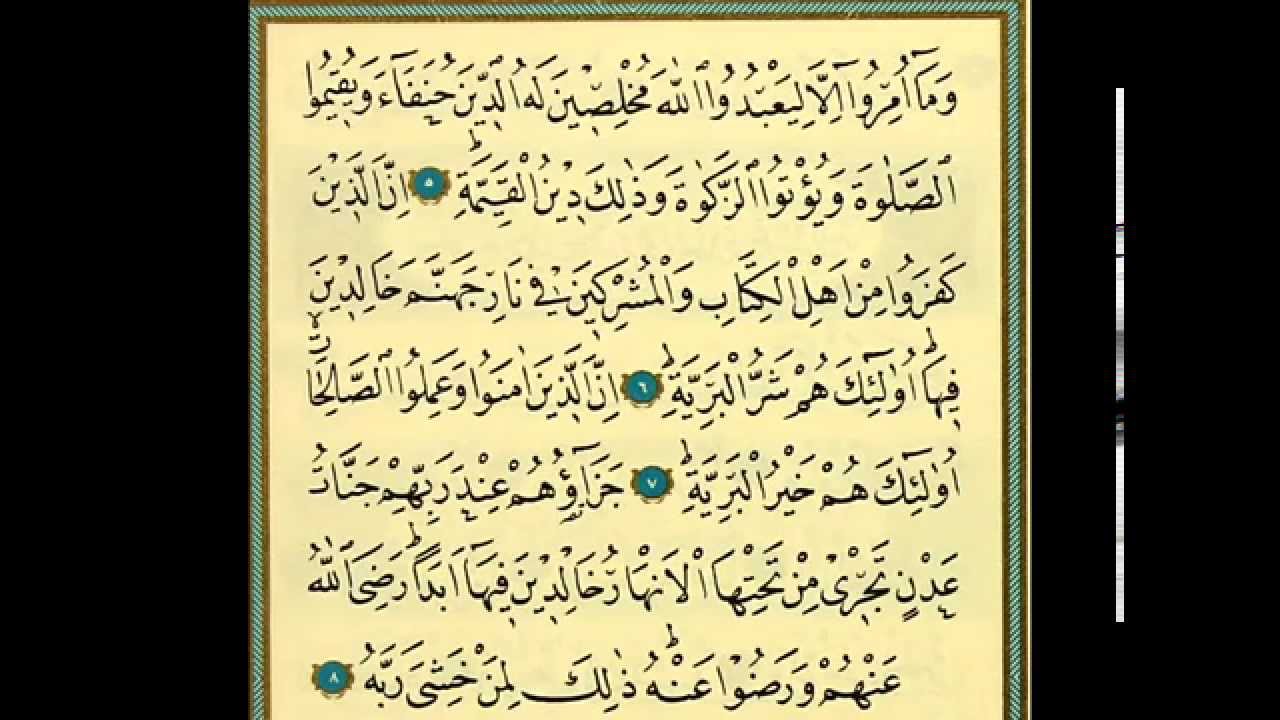 وَمَٓا اُمِرُٓوا اِلَّا لِيَعْبُدُوا اللّٰهَ مُخْلِص۪ينَ لَهُ الدّ۪ينَ حُنَفَٓاءَ وَيُق۪يمُوا
الصَّلٰوةَ وَيُؤْتُوا الزَّكٰوةَ وَذٰلِكَ د۪ينُ الْقَيِّمَةِۜ ﴿٥﴾ اِنَّ الَّذ۪ينَ
كَفَرُوا مِنْ اَهْلِ الْكِتَابِ وَالْمُشْرِك۪ينَ ف۪ي نَارِ جَهَنَّمَ خَالِد۪ينَ
ف۪يهَاۜ اُو۬لٰٓئِكَ هُمْ شَرُّ الْبَرِيَّةِۜ ﴿٦﴾ اِنَّ الَّذ۪ينَ اٰمَنُوا وَعَمِلُوا الصَّالِحَاتِۙ
اُو۬لٰٓئِكَ هُمْ خَيْرُ الْبَرِيَّةِۜ ﴿٧﴾ جَزَٓاؤُ۬هُمْ عِنْدَ رَبِّهِمْ جَنَّاتُ
عَدْنٍ تَجْر۪ي مِنْ تَحْتِهَا الْاَنْهَارُ خَالِد۪ينَ ف۪يهَٓا اَبَدًاۜ رَضِيَ اللّٰهُ
عَنْهُمْ وَرَضُوا عَنْهُۜ ذٰلِكَ لِمَنْ خَشِيَ رَبَّهُ ﴿٨﴾